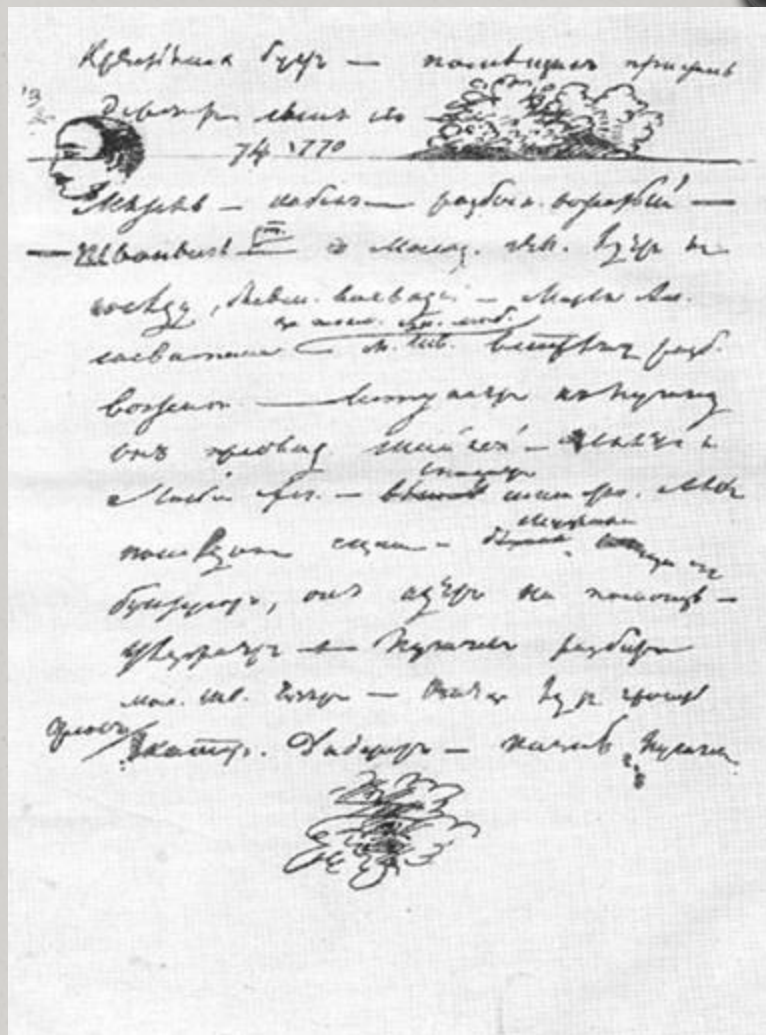 Крестьянск бунт — помещик пристань
держит, сын его —
74 1770
Мятель — кабак — разбойн. вожатый —
— Шванвич ст. — Молод. чел. едет к
соседу, бывш. воеводой — Марья Ал.
сосватана за плем. кот. не люб. М. Шв. встречает разб.
вожатого — вступает к Пугачу
он предвод. шайкой — является к
Марье Ал. — спасает
последняя сцена — Мужики отца его
бунтуют, он идет на помощь —
Уезжает — Пугачев разбит
Мол. Шв. взят — Отец едет просить
Орлов Екатер. Дидерот — Казнь Пугачева